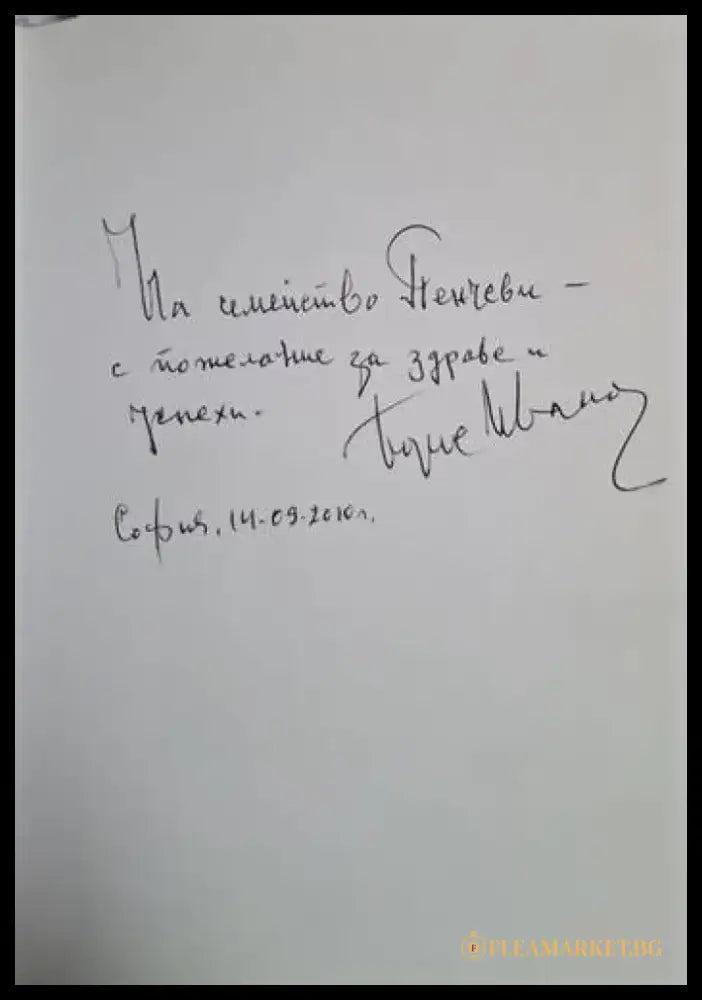 На семейство Пенчеви –
с пожелание за здраве и
успехи.
Иванов
София, 14.09.2010г.
FLEAMARKET.BG